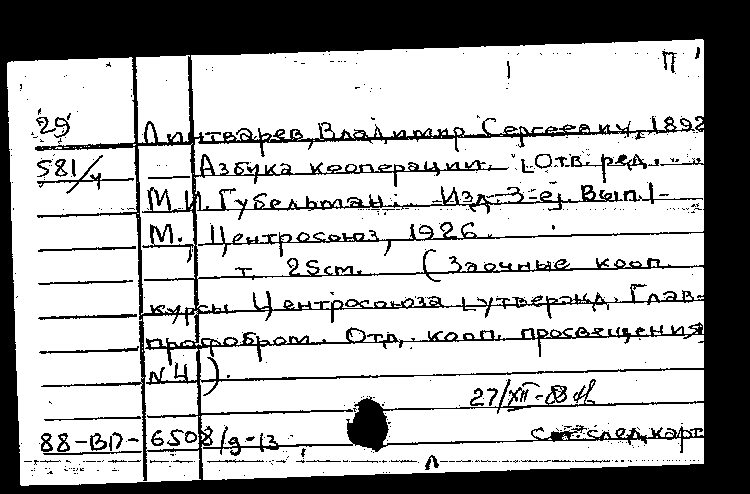 П
29 Линтварев, Владимир Сергеевич, 1892
581/4 Азбука кооперации. [Отв. ред.
М.И. Губельман. Изд. 3-е]. Вып. 1-
М., Центросоюз, 1926.
т. 25см. (Заочные кооп.
курсы Центросоюза [утвержд. Глав-
профобром. Отд. кооп. просвещения
№4).
27/XII-88
88-ВП-6508/9-13 См. след. карт
Л